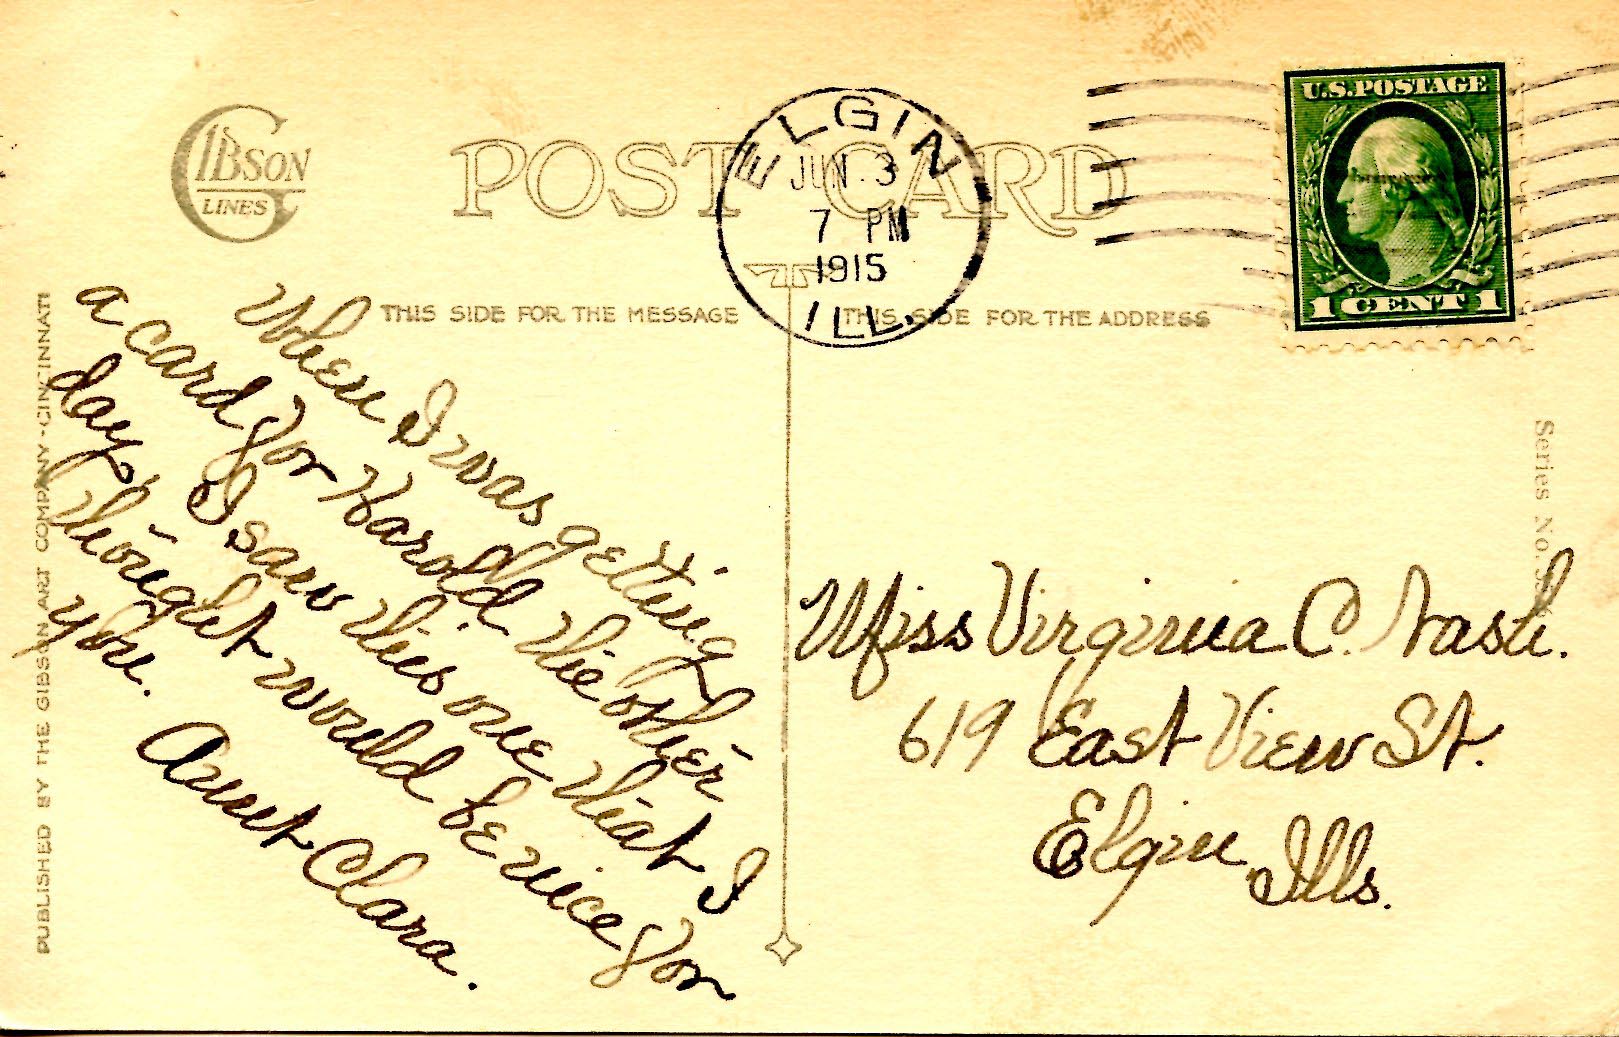 GIBSON
LINES
POST CARD
ELGIN
JUN 3
7 PM
1915
ILL.
U.S. POSTAGE
1 CENT 1
THIS SIDE FOR THE MESSAGE
THIS SIDE FOR THE ADDRESS
When I was getting
a card for Harold the other
day, I saw this one that I
thought would be nice for
you.
Aunt Clara.
Miss Virginia C. Nash.
619 East View St.
Elgin, Ills.
PUBLISHED BY THE GIBSON ART COMPANY - CINCINNATI
Series No.